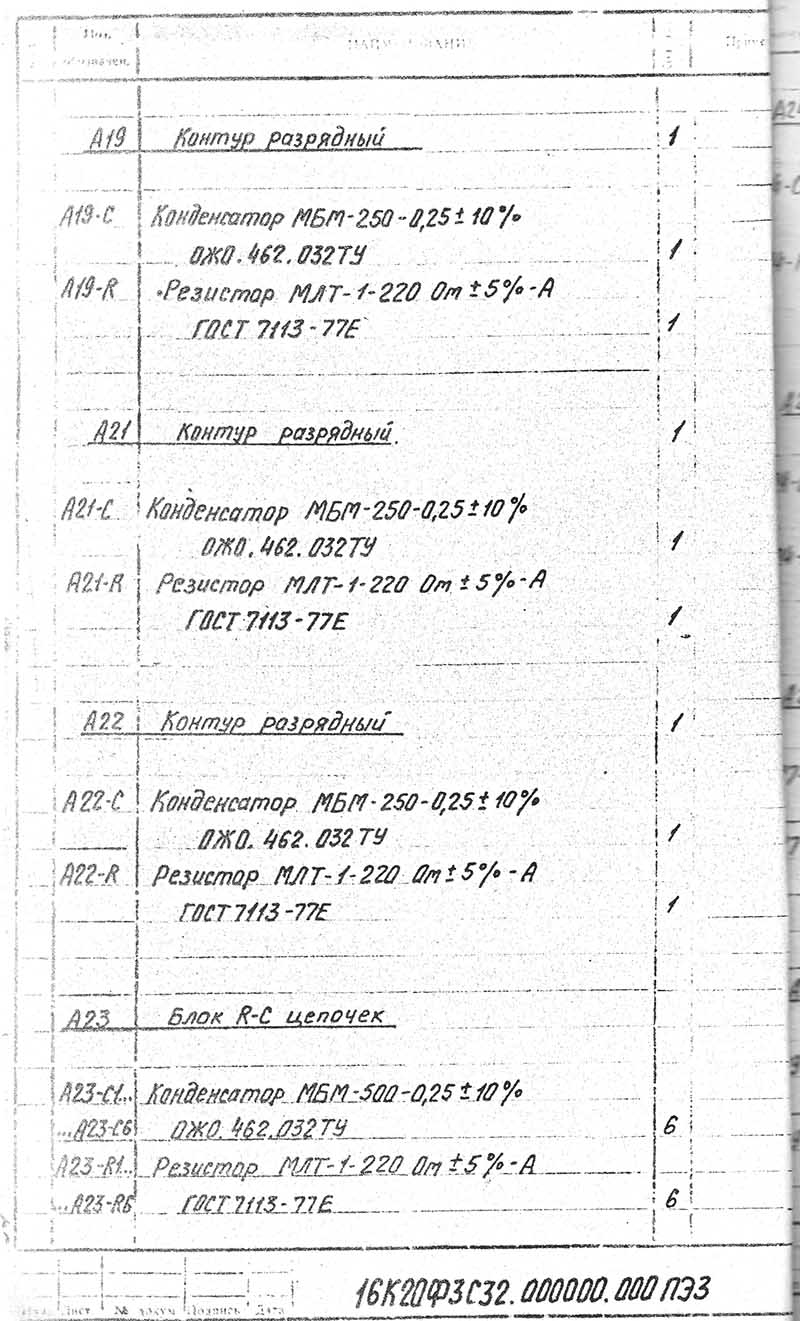 Поз. обозначен. НАИМЕНОВАНИЕ
А19 Контур разрядный 1
А19-С Конденсатор МБМ-250-0,25±10%
ОЖО.462.032ТУ 1
А19-R Резистор МЛТ-1-220 Ом ±5%-А
ГОСТ 7113-77Е 1
А21 Контур разрядный. 1
А21-С Конденсатор МБМ-250-0,25±10%
ОЖО.462.032ТУ 1
А21-R Резистор МЛТ-1-220 Ом ±5%-А
ГОСТ 7113-77Е 1
А22 Контур разрядный 1
А22-С Конденсатор МБМ-250-0,25±10%
ОЖО.462.032ТУ 1
А22-R Резистор МЛТ-1-220 Ом ±5%-А
ГОСТ 7113-77Е 1
А23 Блок R-C цепочек
А23-С1... Конденсатор МБМ-500-0,25±10%
...А23-С6 ОЖО.462.032ТУ 6
А23-R1... Резистор МЛТ-1-220 Ом ±5%-А
...А23-R6 ГОСТ 7113-77Е 6
16К20Ф3С32.000000.000ПЭ3
Лист № докум Подпись Дата